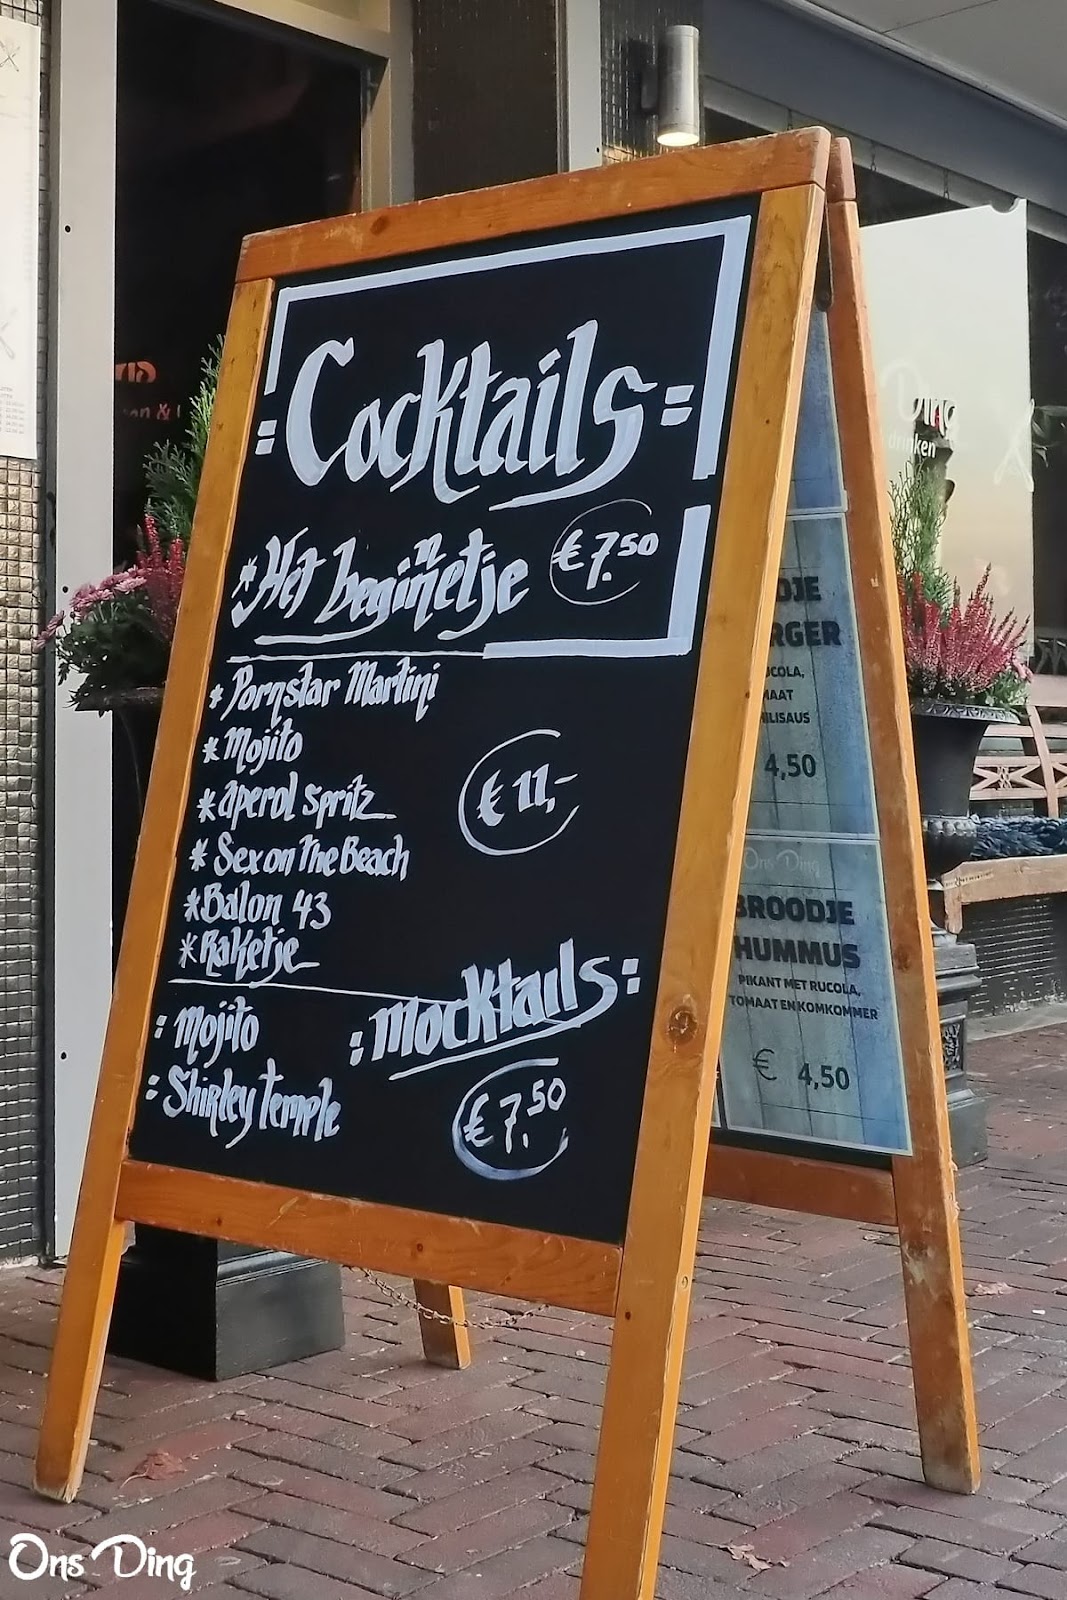 Cocktails
*Het beginnetje €7.50
* Pornstar Martini
* Mojito
* aperol spritz
€11,-
* Sex on the Beach
*Balon 43
*Raketje
: Mocktails:
: Mojito
: Shirley temple
€7.50
Ding
drinken
4,50
Ons Ding
BROODJE
HUMMUS
PIKANT MET RUCOLA,
TOMAAT EN KOMKOMMER
€ 4,50
Ons Ding